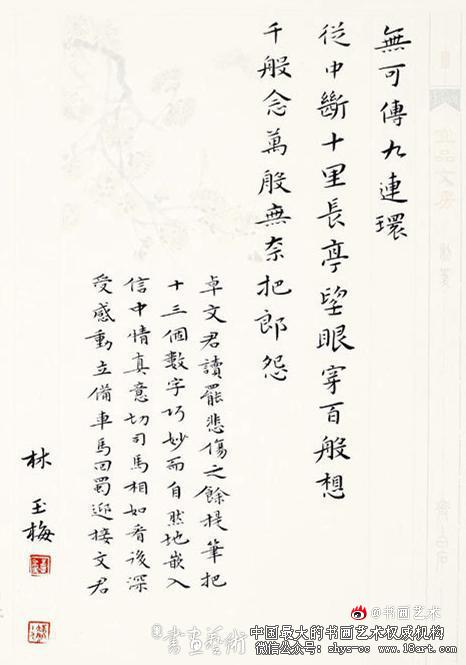 無可傳九連環
從中斷十里長亭望眼穿百般想
千般念萬般無奈把郎怨
卓文君讀罷悲傷之餘提筆把
十三個數字巧妙而自然地嵌入
信中情真意切司馬相如看後深
受感動立備車馬回蜀迎接文君
林玉梅
@书画艺术
書畫藝術
中国最大的书画艺术权威机构
微信公众号：shys-cc www.18art.com